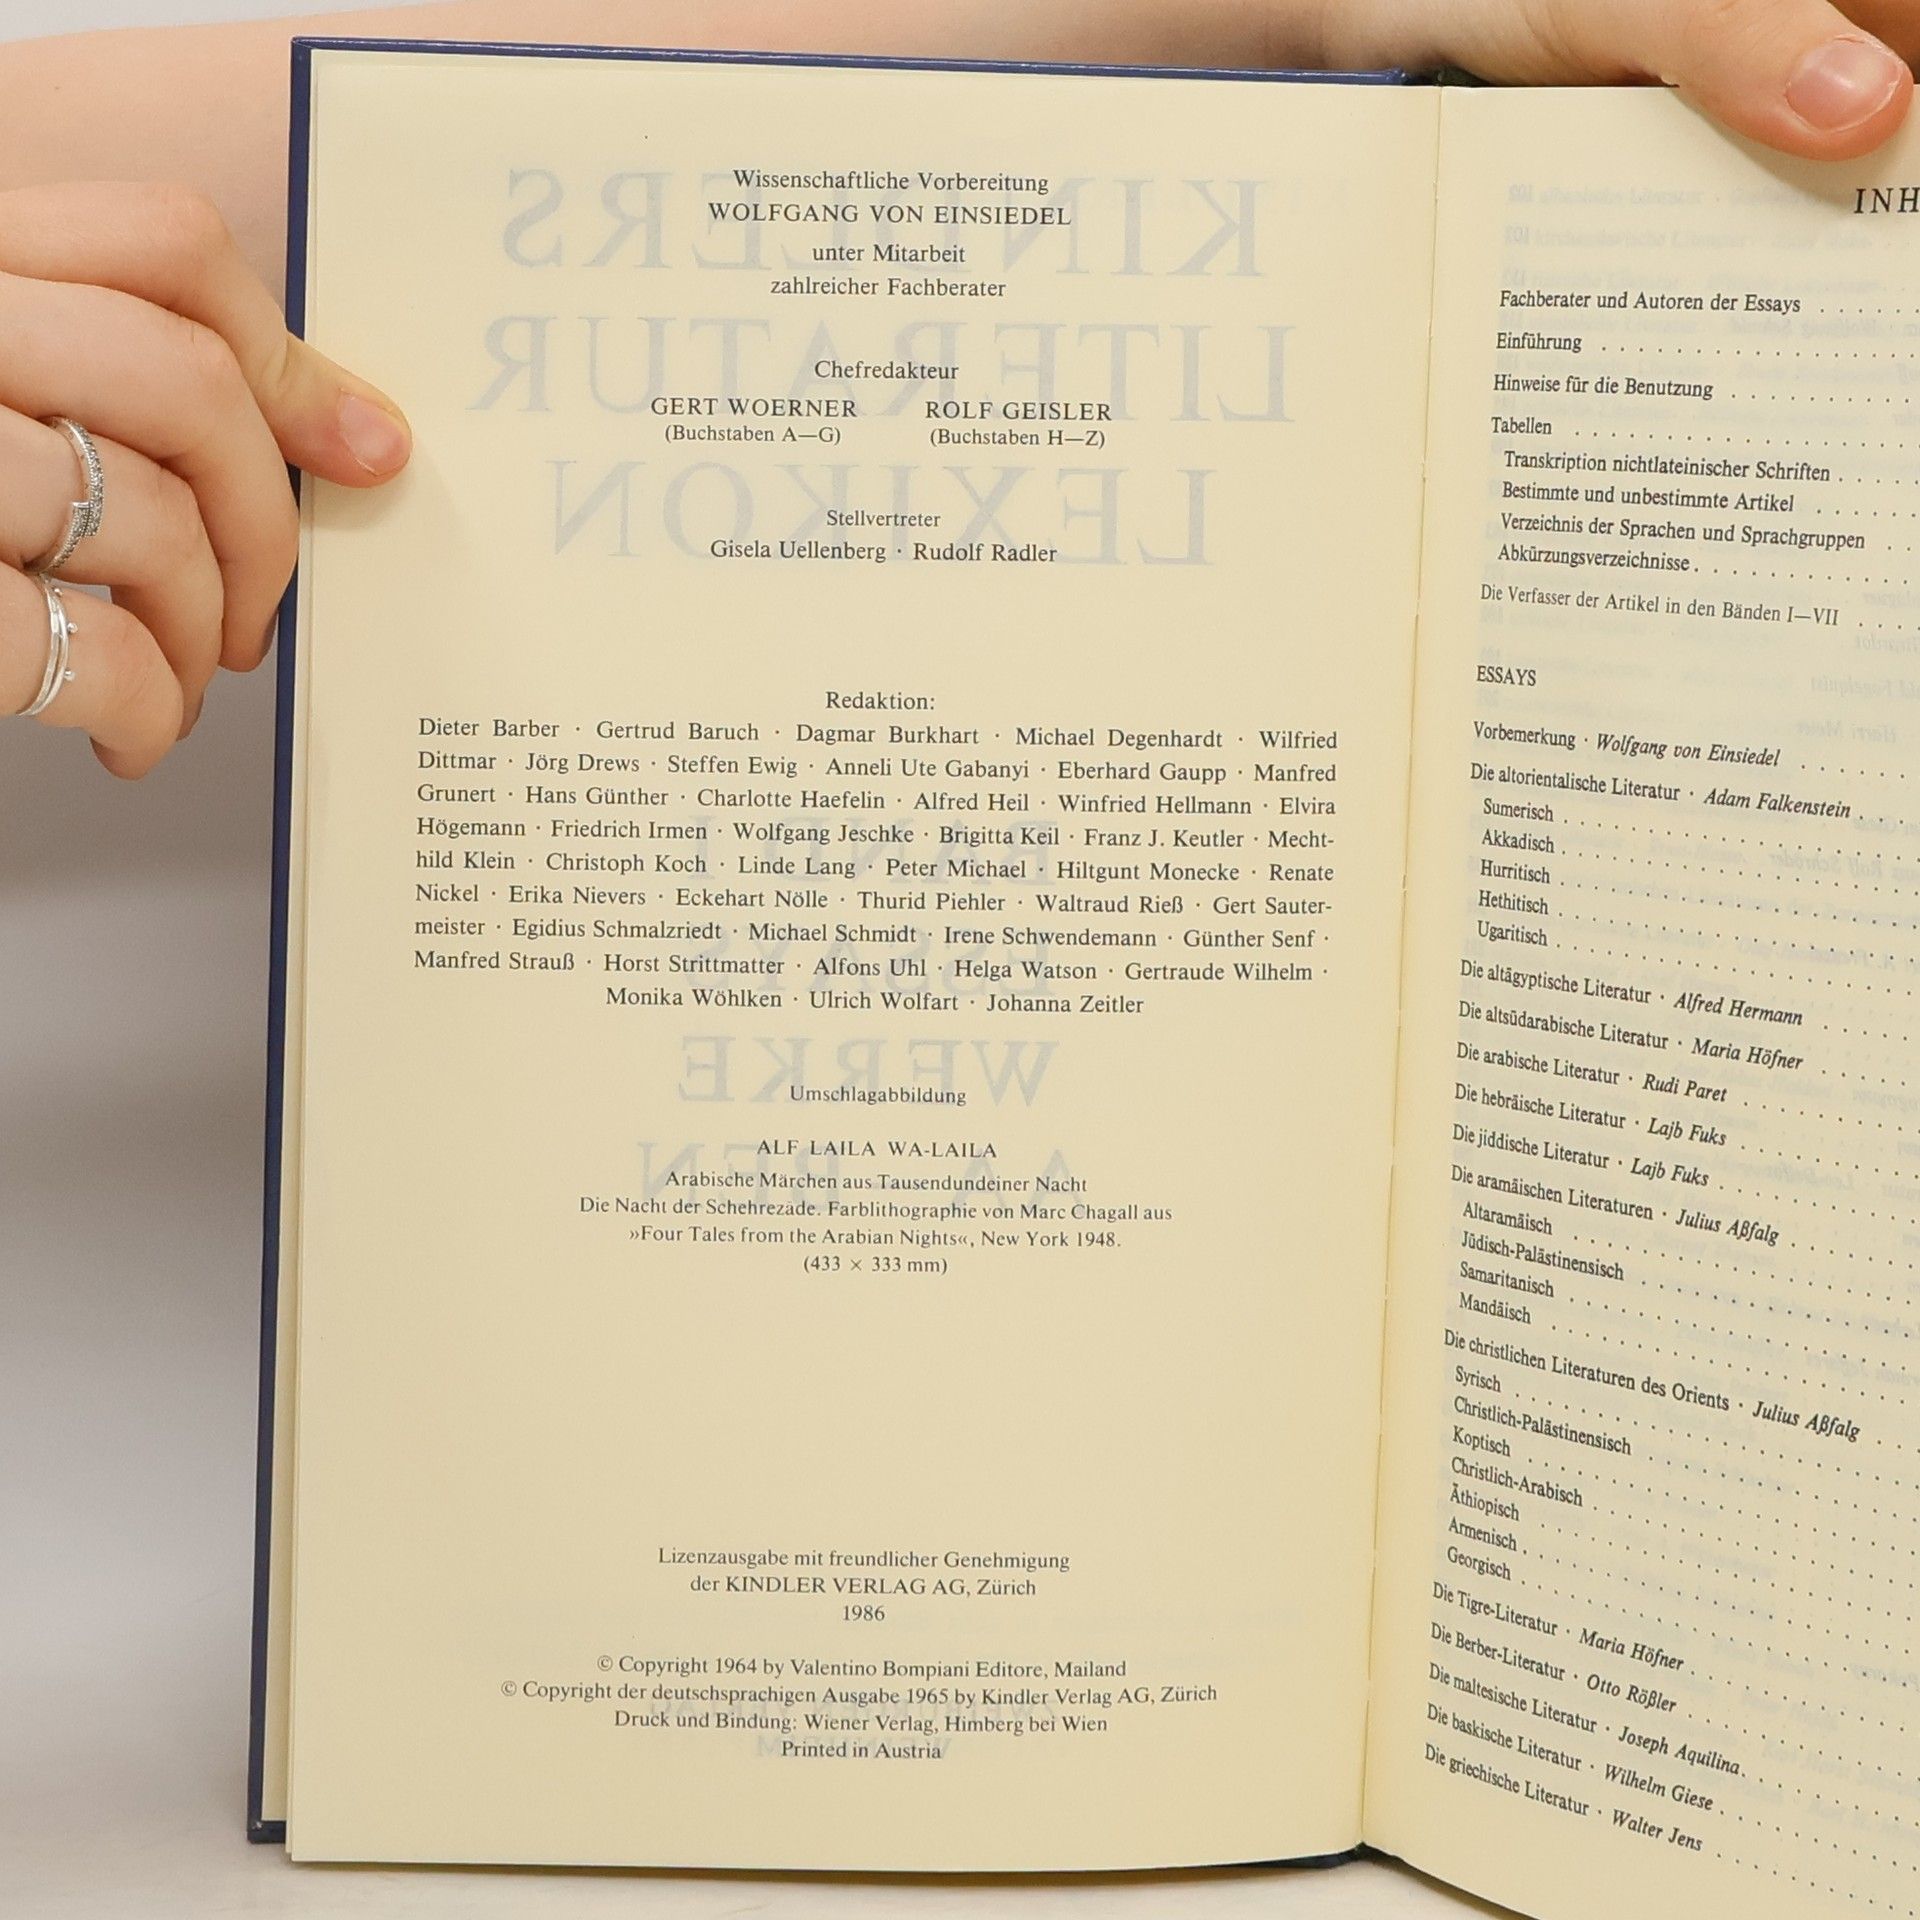 Wissenschaftliche Vorbereitung
WOLFGANG VON EINSIEDEL
unter Mitarbeit
zahlreicher Fachberater
Chefredakteur
GERT WOERNER ROLF GEISLER
(Buchstaben A—G) (Buchstaben H—Z)
Stellvertreter
Gisela Uellenberg · Rudolf Radler
Redaktion:
Dieter Barber · Gertrud Baruch · Dagmar Burkhart · Michael Degenhardt · Wilfried
Dittmar · Jörg Drews · Steffen Ewig · Anneli Ute Gabanyi · Eberhard Gaupp · Manfred
Grunert · Hans Günther · Charlotte Haefelin · Alfred Heil · Winfried Hellmann · Elvira
Högemann · Friedrich Irmen · Wolfgang Jeschke · Brigitta Keil · Franz J. Keutler · Mecht-
hild Klein · Christoph Koch · Linde Lang · Peter Michael · Hiltgunt Monecke · Renate
Nickel · Erika Nievers · Eckehart Nölle · Thurid Piehler · Waltraud Rieß · Gert Sauter-
meister · Egidius Schmalzriedt · Michael Schmidt · Irene Schwendemann · Günther Senf ·
Manfred Strauß · Horst Strittmatter · Alfons Uhl · Helga Watson · Gertraude Wilhelm ·
Monika Wöhlken · Ulrich Wolfart · Johanna Zeitler
Umschlagabbildung
ALF LAILA WA-LAILA
Arabische Märchen aus Tausendundeiner Nacht
Die Nacht der Schehrezâde. Farblithographie von Marc Chagall aus
»Four Tales from the Arabian Nights«, New York 1948.
(433 × 333 mm)
Lizenzausgabe mit freundlicher Genehmigung
der KINDLER VERLAG AG, Zürich
1986
© Copyright 1964 by Valentino Bompiani Editore, Mailand
© Copyright der deutschsprachigen Ausgabe 1965 by Kindler Verlag AG, Zürich
Druck und Bindung: Wiener Verlag, Himberg bei Wien
Printed in Austria
INH
Fachberater und Autoren der Essays . . . . . .
Einführung . . . . . .
Hinweise für die Benutzung . . . . . .
Tabellen . . . . . .
Transkription nichtlateinischer Schriften . . . . .
Bestimmte und unbestimmte Artikel . . . . . .
Verzeichnis der Sprachen und Sprachgruppen . .
Abkürzungsverzeichnisse . . . . . .
Die Verfasser der Artikel in den Bänden I—VII . . . .
ESSAYS
Vorbemerkung · Wolfgang von Einsiedel . . . . . .
Die altorientalische Literatur · Adam Falkenstein . . . .
Sumerisch . . . . . .
Akkadisch . . . . . .
Hurritisch . . . . . .
Hethitisch . . . . . .
Ugaritisch . . . . . .
Die altägyptische Literatur · Alfred Hermann . . . . .
Die altsüdarabische Literatur · Maria Höfner . . . . .
Die arabische Literatur · Rudi Paret . . . . . .
Die hebräische Literatur · Lajb Fuks . . . . . .
Die jiddische Literatur · Lajb Fuks . . . . . .
Die aramäischen Literaturen · Julius Aßfalg . . . . . .
Altaramäisch . . . . . .
Jüdisch-Palästinensisch . . . . . .
Samaritanisch . . . . . .
Mandäisch . . . . . .
Die christlichen Literaturen des Orients · Julius Aßfalg . . .
Syrisch . . . . . .
Christlich-Palästinensisch . . . . . .
Koptisch . . . . . .
Christlich-Arabisch . . . . . .
Äthiopisch . . . . . .
Armenisch . . . . . .
Georgisch . . . . . .
Die Tigre-Literatur · Maria Höfner . . . . . .
Die Berber-Literatur · Otto Rößler . . . . . .
Die maltesische Literatur · Joseph Aquilina . . . . . .
Die baskische Literatur · Wilhelm Giese . . . . . .
Die griechische Literatur · Walter Jens . . . . . .